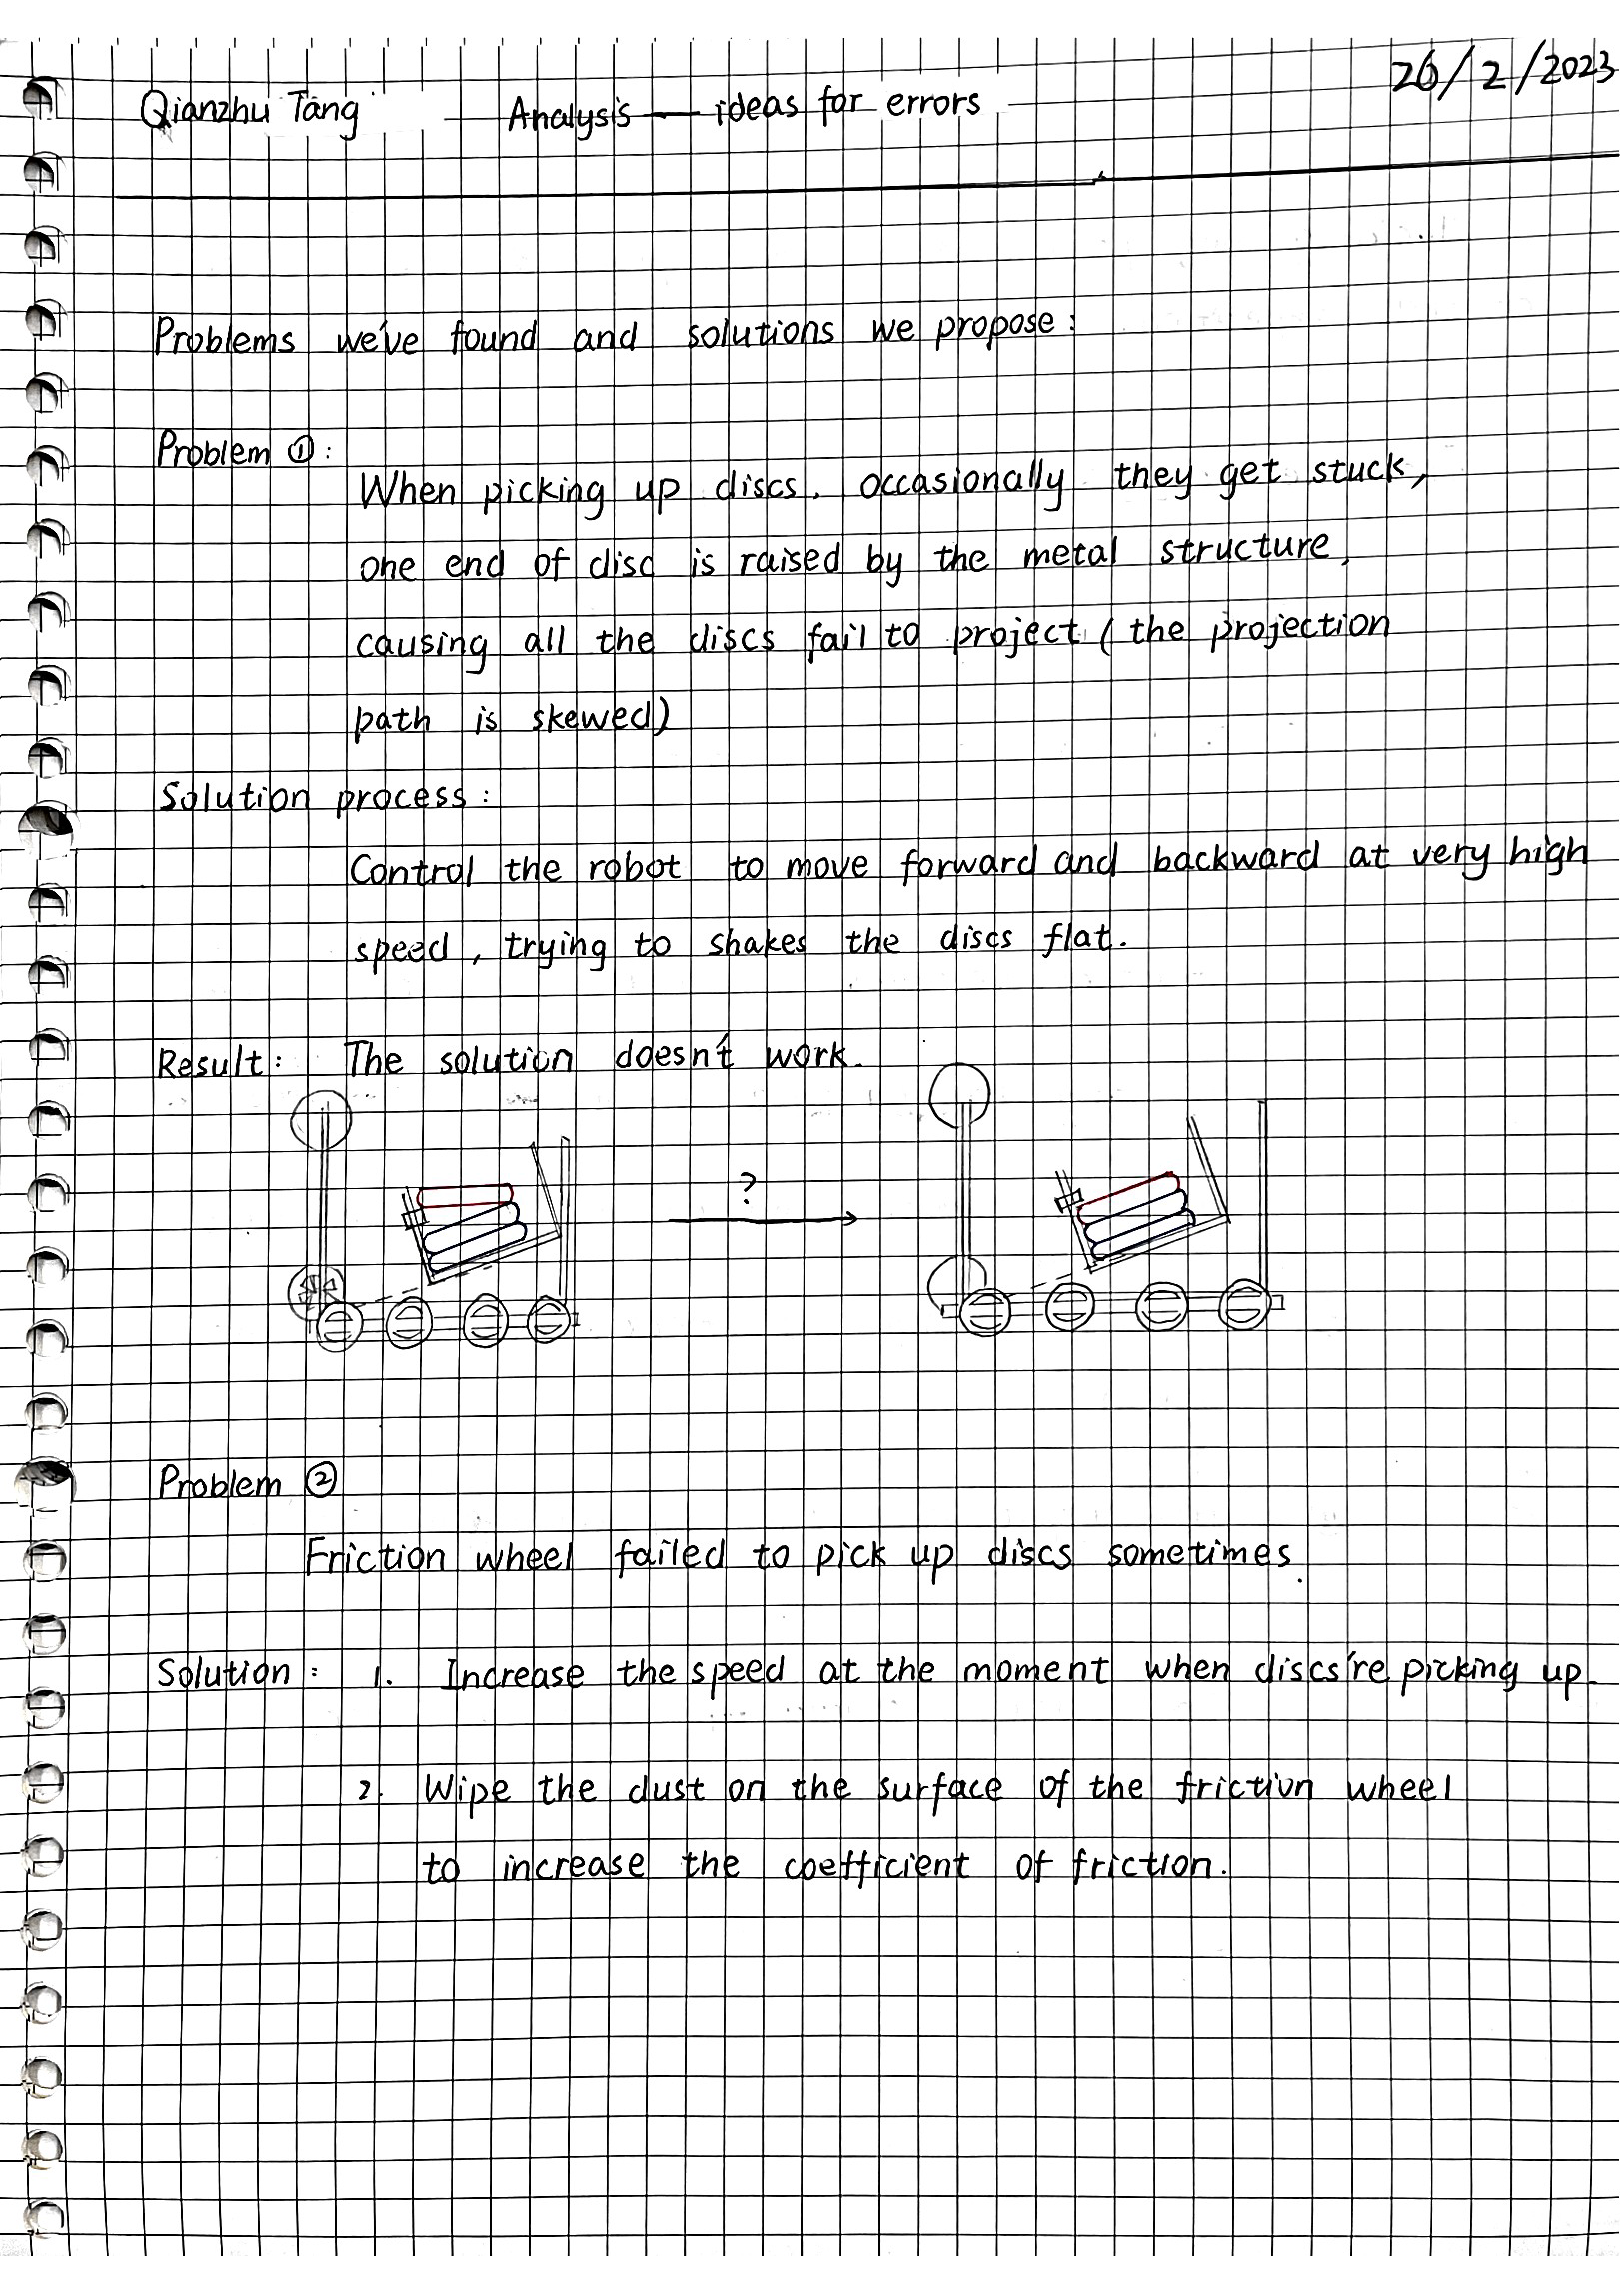 26/2/2023
Qianzhu Tang Analysis — ideas for errors
Problems we've found and solutions we propose:
Problem ①:
When picking up discs, occasionally they get stuck,
one end of disc is raised by the metal structure,
causing all the discs fail to project (the projection
path is skewed)
Solution process:
Control the robot to move forward and backward at very high
speed, trying to shakes the discs flat.
Result: The solution doesn't work.
?
Problem ②
Friction wheel failed to pick up discs sometimes.
Solution: 1. Increase the speed at the moment when discs're picking up.
2. Wipe the dust on the surface of the friction wheel
to increase the coefficient of friction.